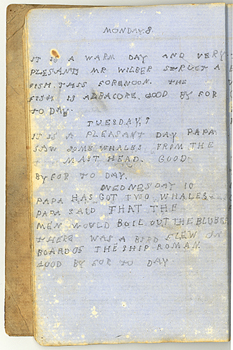 MONDAY. 8
IT IS A WARM DAY AND VERY
PLESANT. MR. WILBER STRUCT A
FISH. THIS FORENOON. THE
FISH IS ALBACORE. GOOD BY FOR
TO DAY.
TUESDAY. 9
IT IS A PLEASANT DAY PAPA
SAW SOME WHALES. FROM THE
MAST HEAD. GOOD.
BY FOR TO DAY.
WEDNESDAY 10
PAPA HAS GOT TWO WHALES.
PAPA SAID THAT THE
MEN WOULD BOIL OUT THE BLUBER
THERE WAS A BIRD FLEW ON
BOARD OF THE SHIP ROMAN.
GOOD BY FOR TO DAY